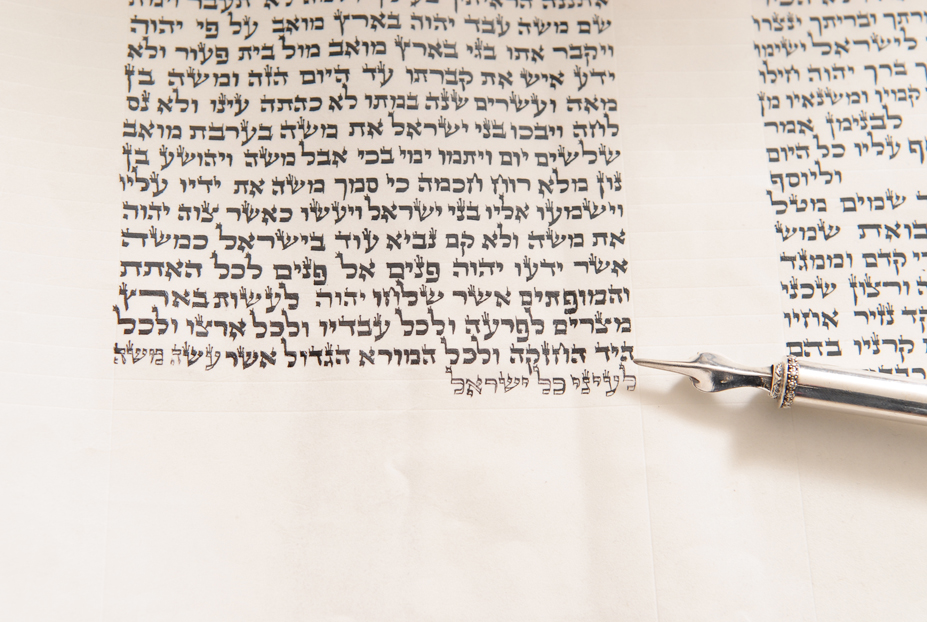 שם משה עבד יהוה בארץ מואב על פי יהוה
ויקבר אתו בגי בארץ מואב מול בית פעור ולא
ידע איש את קברתו עד היום הזה ומשה בן
מאה ועשרים שנה במתו לא כהתה עינו ולא נס
לחה ויבכו בני ישראל את משה בערבת מואב
שלשים יום ויתמו ימי בכי אבל משה ויהושע בן
נון מלא רוח חכמה כי סמך משה את ידיו עליו
וישמעו אליו בני ישראל ויעשו כאשר צוה יהוה
את משה ולא קם נביא עוד בישראל כמשה
אשר ידעו יהוה פנים אל פנים לכל האתת
והמופתים אשר שלחו יהוה לעשות בארץ
מצרים לפרעה ולכל עבדיו ולכל ארצו ולכל
היד החזקה ולכל המורא הגדול אשר עשה משה
לעיני כל ישראל
לישראל ישימו
ברך יהוה חילו
קמיו ומשנאיו מן
לבנימן אמר
עליו כל היום
וליוסף
שמים מטל
שמש
קדם וממגד
שכני
נזיר אחיו
קרניו בהם